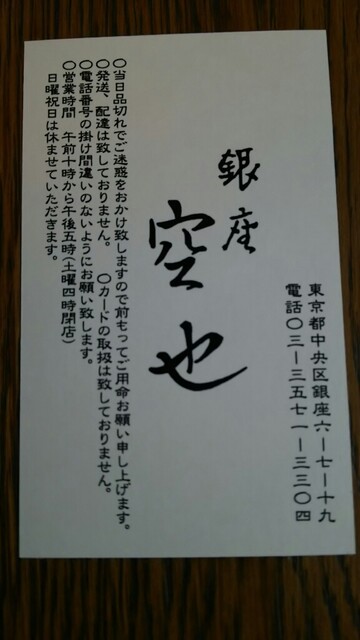 東京都中央区銀座六－七－十九
電話〇三－三五七一－三三〇四
銀座
空也
〇当日品切れでご迷惑をおかけ致しますので前もってご用命お願い申し上げます。
〇発送、配達は致しておりません。　〇カードの取扱は致しておりません。
〇電話番号の掛け間違いのないようにお願い致します。
〇営業時間　午前十時から午後五時(土曜四時閉店)
日曜祝日は休ませていただきます。